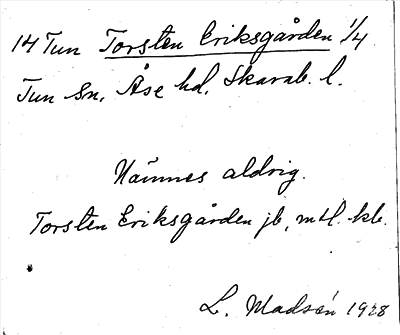 14 Tun Torsten Eriksgården 1/4
Tun sn, Åse hd, Skarab. l.
Nämnes aldrig.
Torsten Eriksgården jb, mtl. kb.
L. Madsén 1928